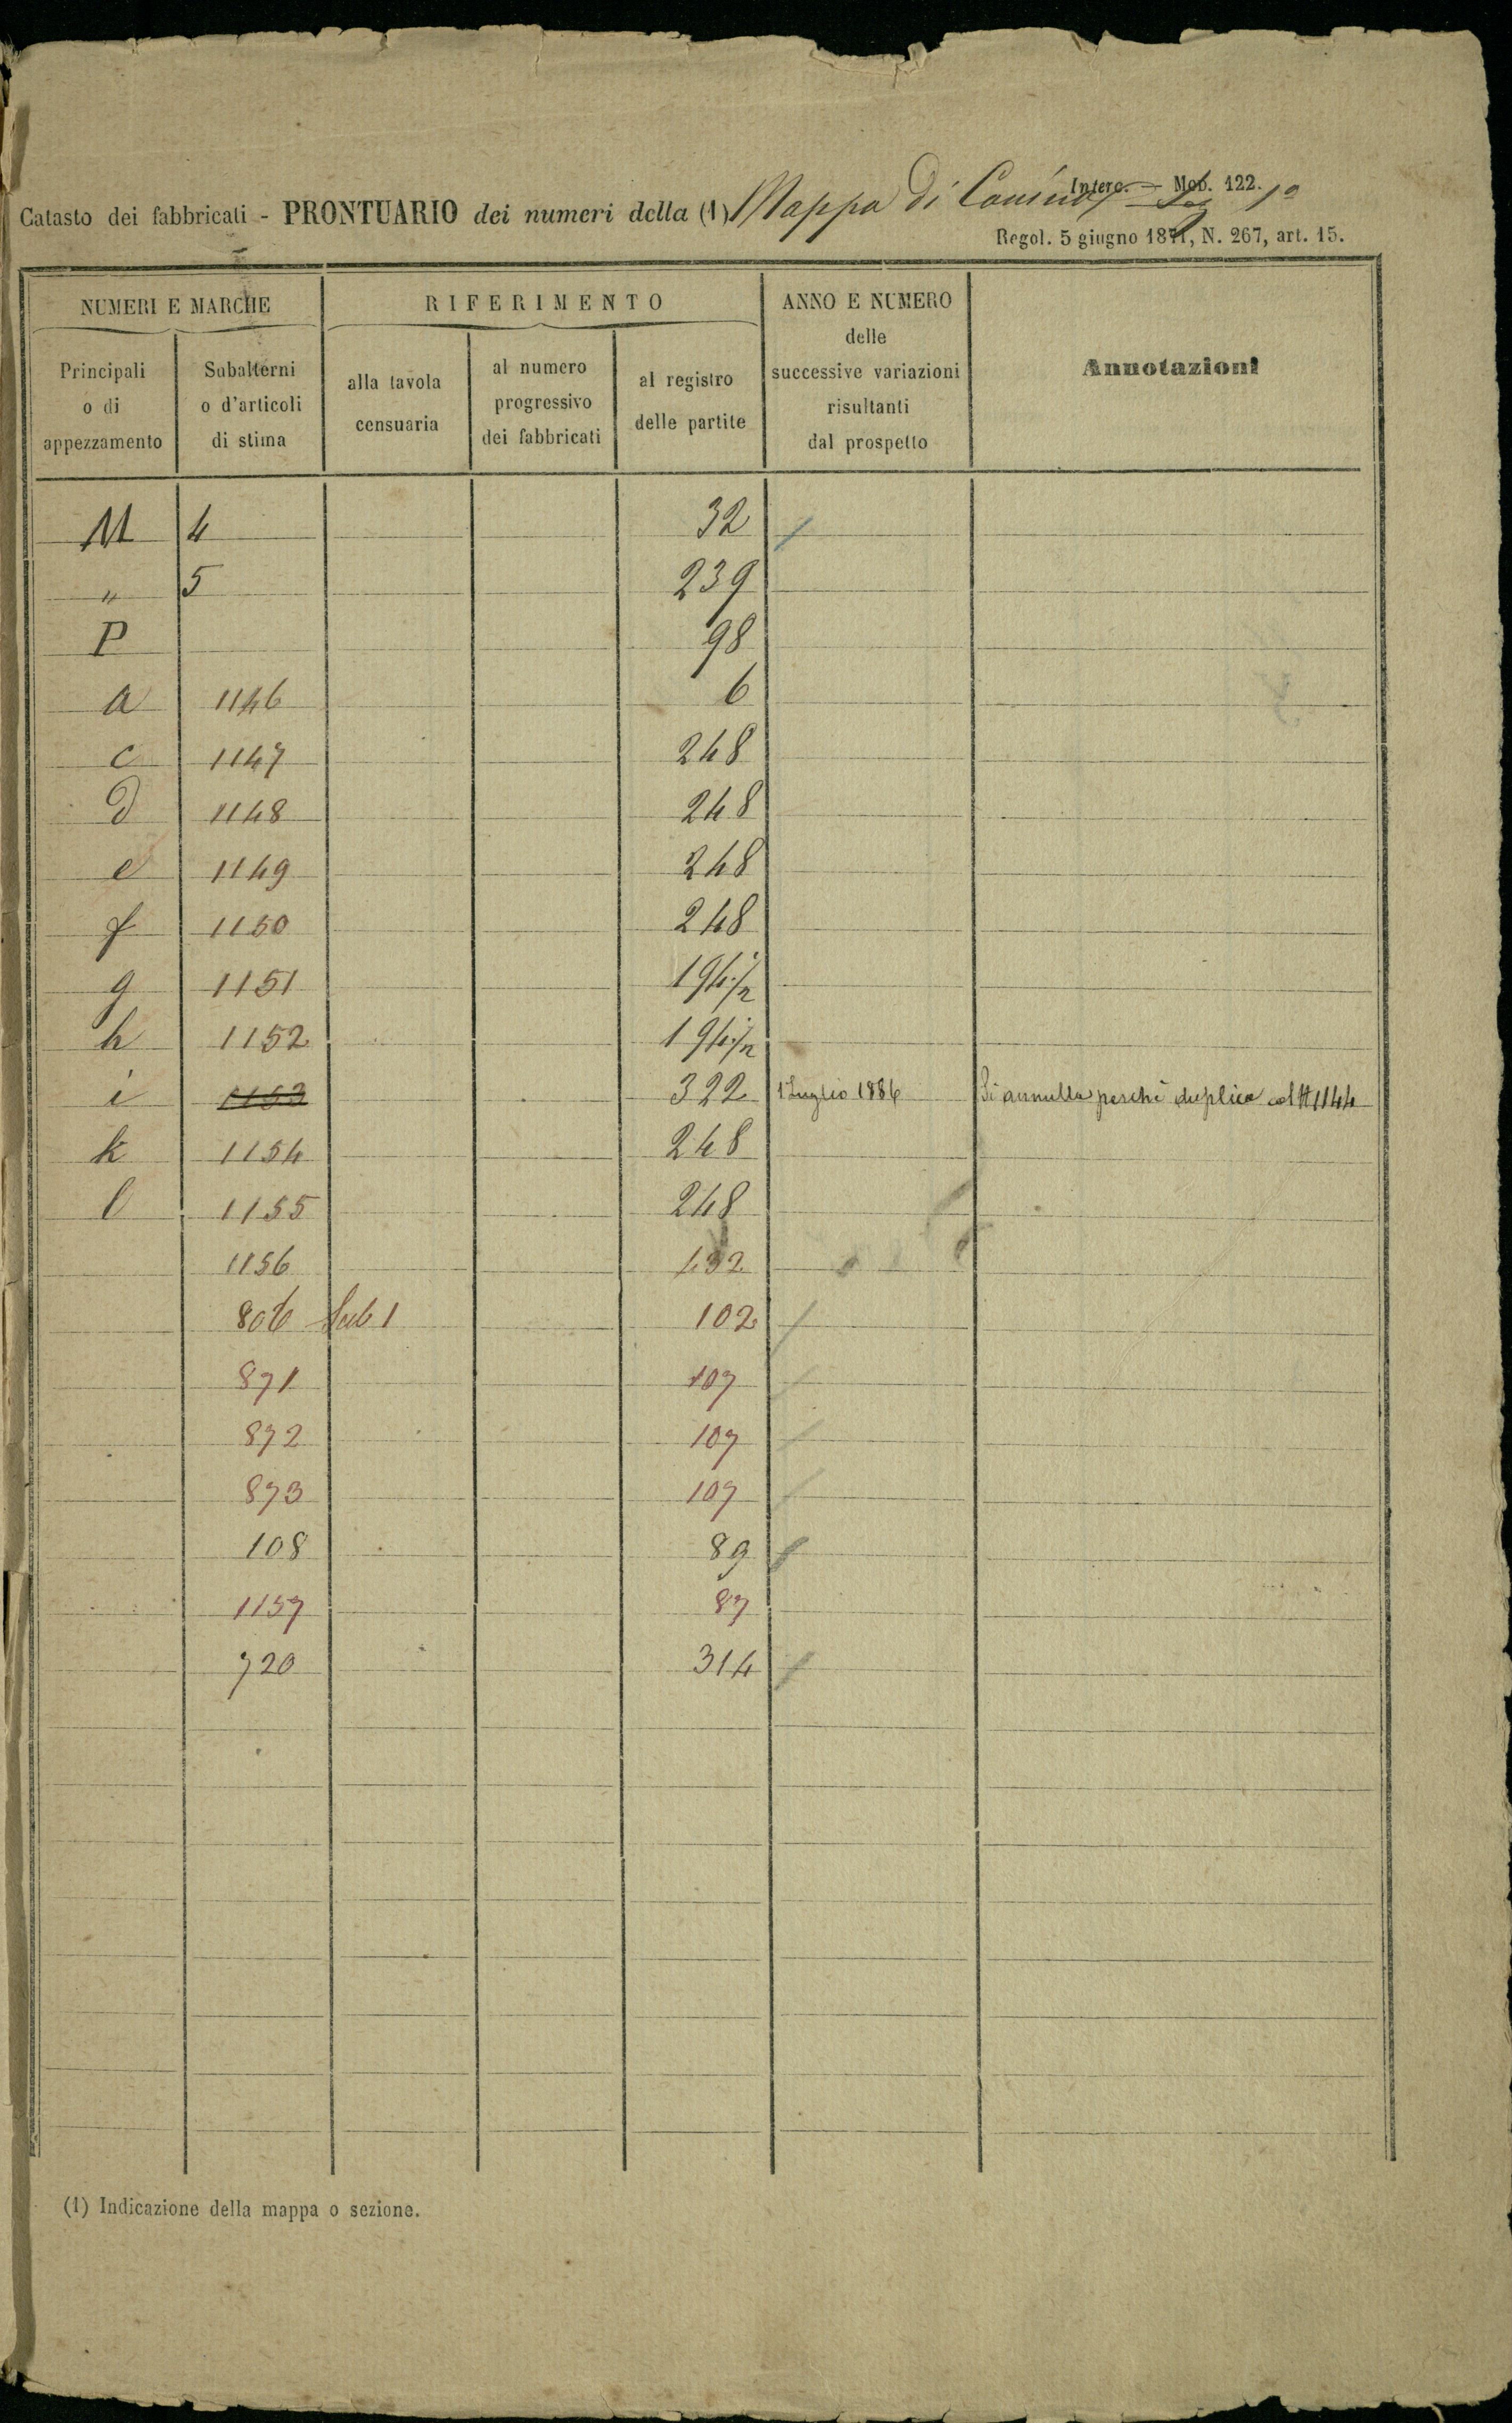 Interc. — Mod. 122.
Catasto dei fabbricati - PRONTUARIO dei numeri della (1) Mappa di Canino Sez 1a
Regol. 5 giugno 1871, N. 267, art. 15.
NUMERI E MARCHE RIFERIMENTO ANNO E NUMERO delle successive variazioni risultanti dal prospetto Annotazioni
Principali o di appezzamento Subalterni o d'articoli di stima alla tavola censuaria al numero progressivo dei fabbricati al registro delle partite
M 4 32
" 5 239
P 98
a 1146 6
c 1147 248
d 1148 248
e 1149 248
f 1150 248
g 1151 194
h 1152 194
i 1153 322 1 Luglio 1886 Si annulla perché duplica col N 1144
k 1154 248
l 1155 248
1156 132
806 Sub 1 102
871 107
872 107
873 107
108 89
1157 87
720 314
(1) Indicazione della mappa o sezione.